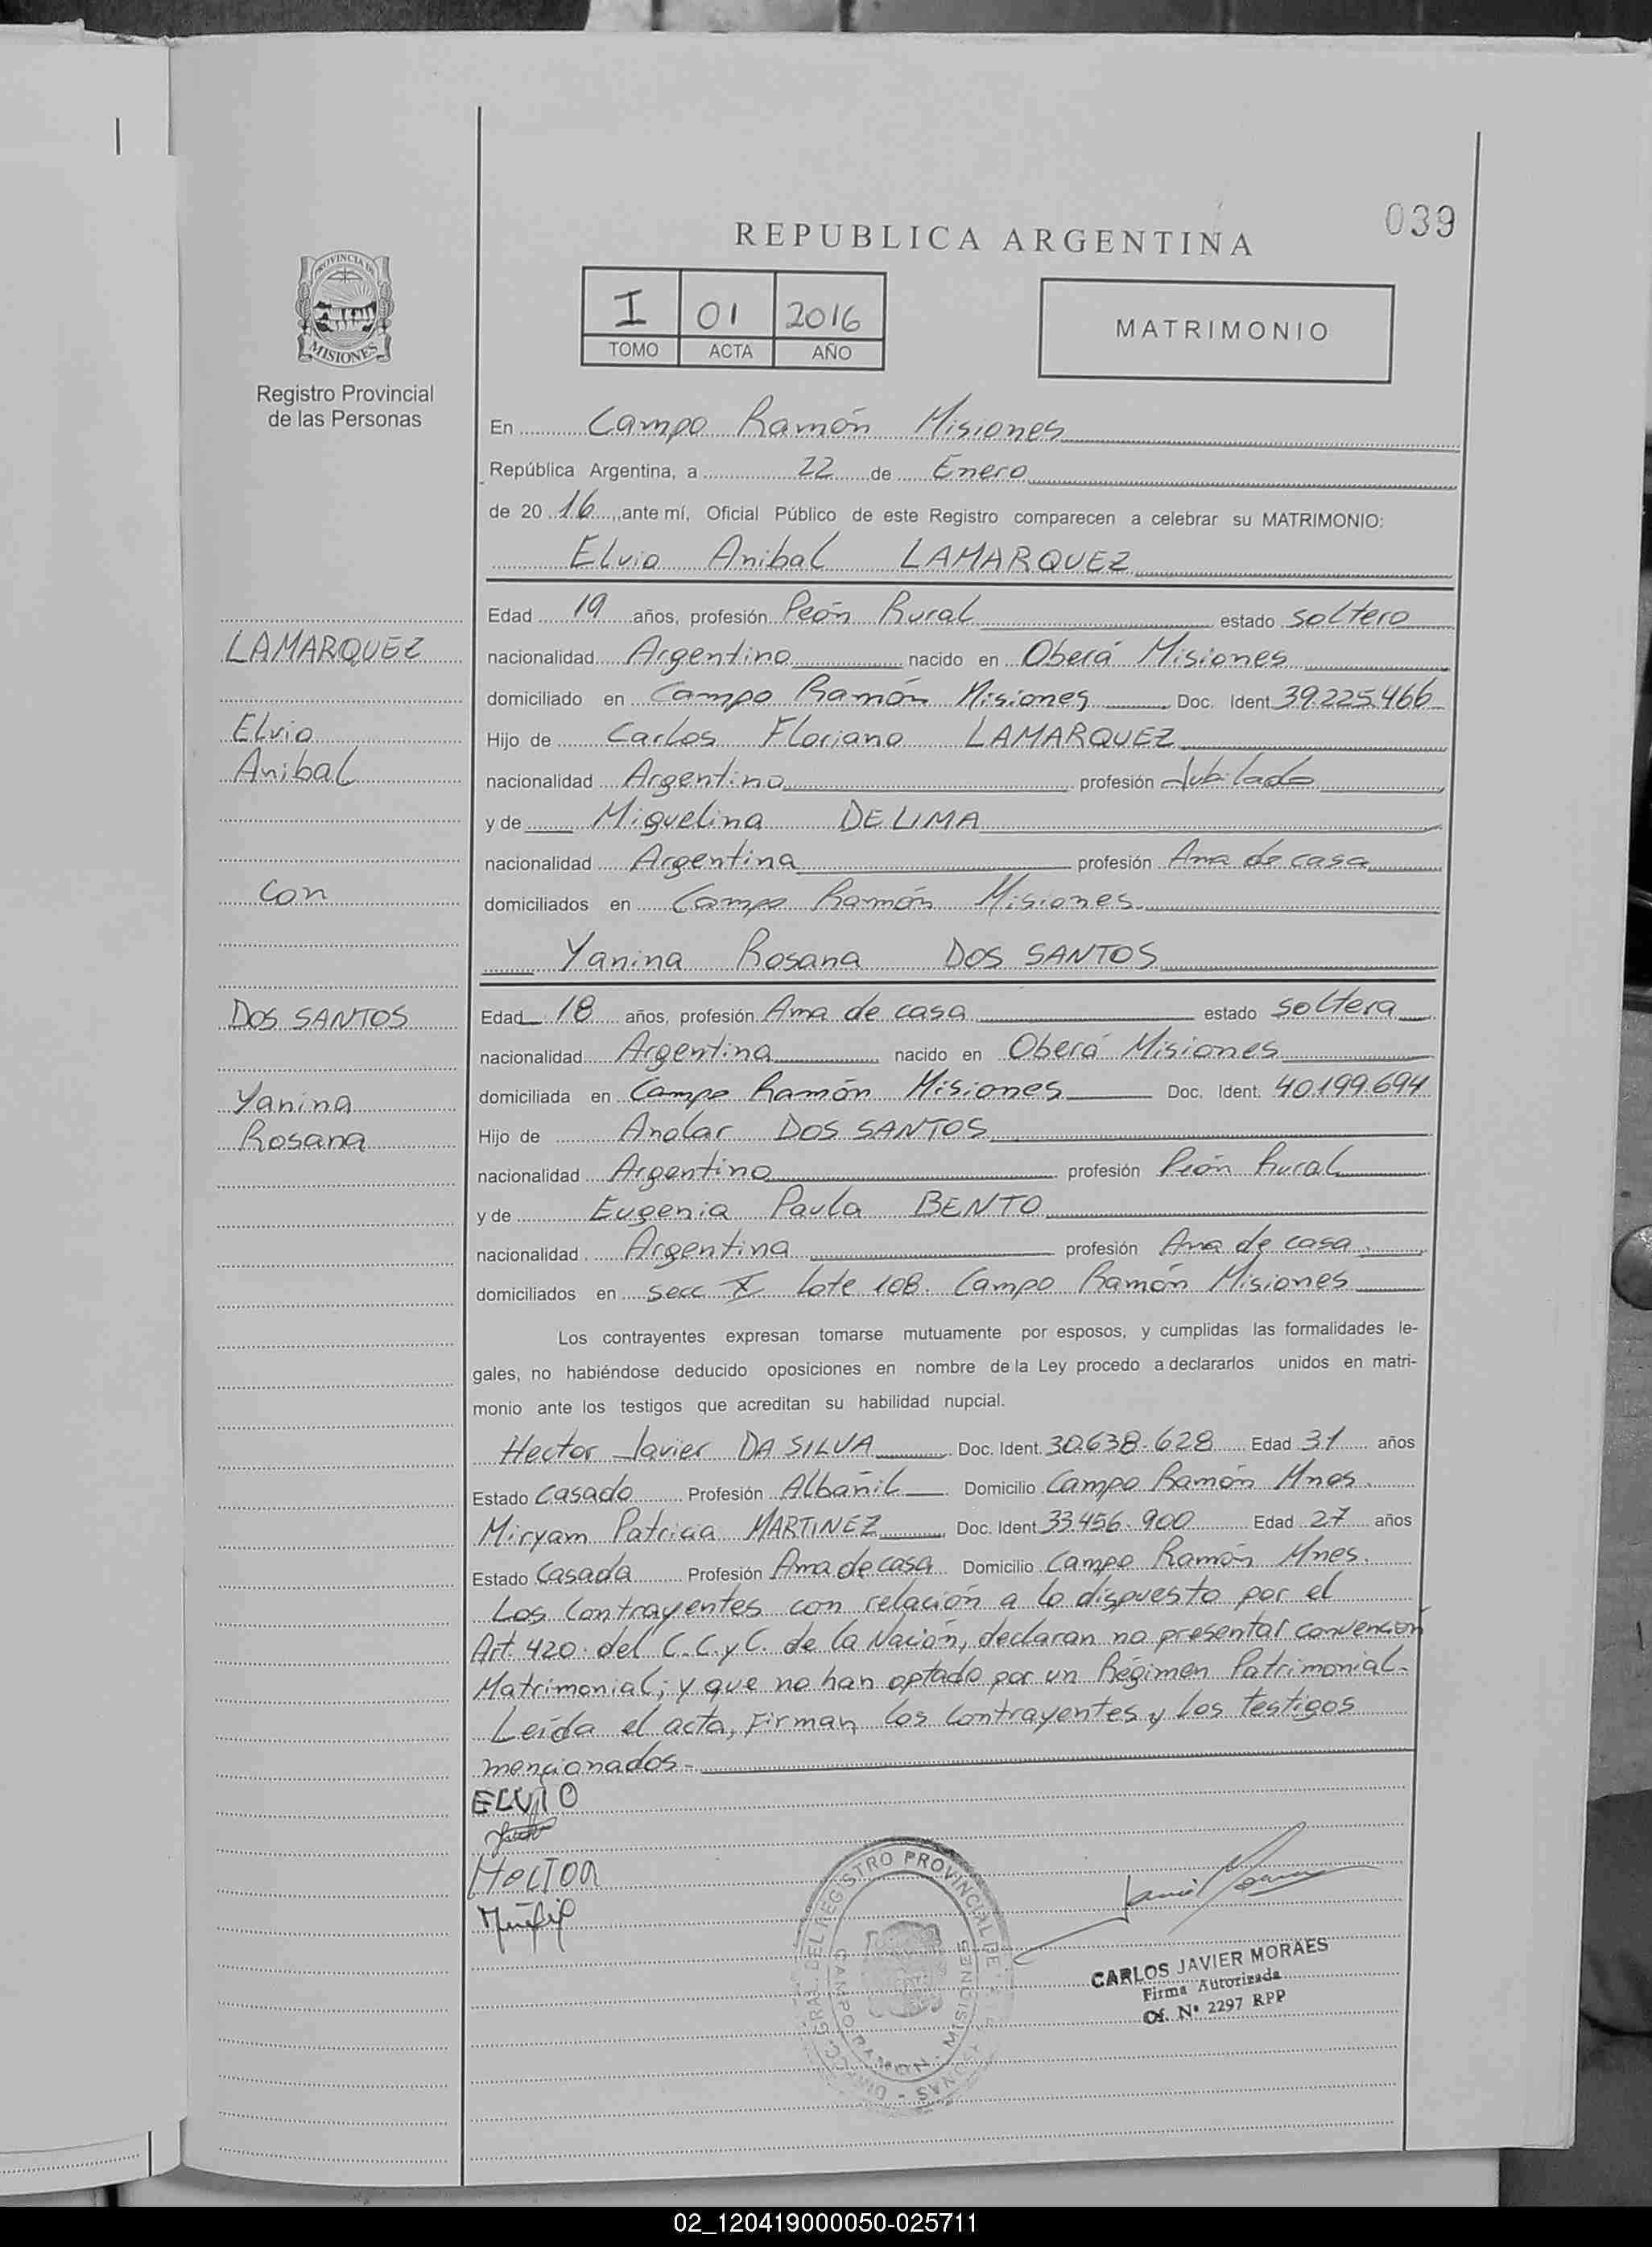 039
REPUBLICA ARGENTINA
PROVINCIA DE
MISIONES
Registro Provincial
de las Personas
I 01 2016
TOMO ACTA AÑO
MATRIMONIO
En Campo Ramón Misiones
República Argentina, a 22 de Enero
de 20 16 ,ante mí, Oficial Público de este Registro comparecen a celebrar su MATRIMONIO:
Elvio Anibal LAMARQUEZ
Edad 19 años, profesión Peón Rural estado soltero
LAMARQUEZ
nacionalidad Argentino nacido en Oberá Misiones
domiciliado en Campo Ramón Misiones Doc. Ident 39.225.466
Elvio
Hijo de Carlos Floriano LAMARQUEZ
Anibal
nacionalidad Argentino profesión Jubilado
y de Miguelina DE LIMA
nacionalidad Argentina profesión Ama de casa
Con
domiciliados en Campo Ramón Misiones
Yanina Rosana DOS SANTOS
DOS SANTOS
Edad 18 años, profesión Ama de casa estado soltera
nacionalidad Argentina nacido en Oberá Misiones
Yanina
domiciliada en Campo Ramón Misiones Doc. Ident. 40.199.694
Rosana
Hijo de Anolar DOS SANTOS
nacionalidad Argentino profesión Peón Rural
y de Eugenia Paula BENTO
nacionalidad Argentina profesión Ama de casa
domiciliados en secc X Lote 108. Campo Ramón Misiones
Los contrayentes expresan tomarse mutuamente por esposos, y cumplidas las formalidades le-
gales, no habiéndose deducido oposiciones en nombre de la Ley procedo a declararlos unidos en matri-
monio ante los testigos que acreditan su habilidad nupcial.
Hector Javier DA SILVA Doc. Ident. 30.638.628 Edad 31 años
Estado Casado Profesión Albañil Domicilio Campo Ramón Mnes.
Miryam Patricia MARTINEZ Doc. Ident 33.456.900 Edad 27 años
Estado Casada Profesión Ama de casa Domicilio Campo Ramón Mnes.
Los Contrayentes con relación a lo dispuesto por el
Art. 420. del C.C.y C. de la Nación, declaran no presentar convención
Matrimonial; y que no han optado por un Régimen Patrimonial.
Leída el acta, Firman los Contrayentes y los testigos
mencionados-
ELVIO
HECTOR
DIREC. GRAL. DEL REGISTRO PROVINCIAL DE LAS PERSONAS -
CAMPO RAMON - MISIONES
CARLOS JAVIER MORAES
Firma Autorizada
Of. Nº 2297 RPP
02_120419000050-025711